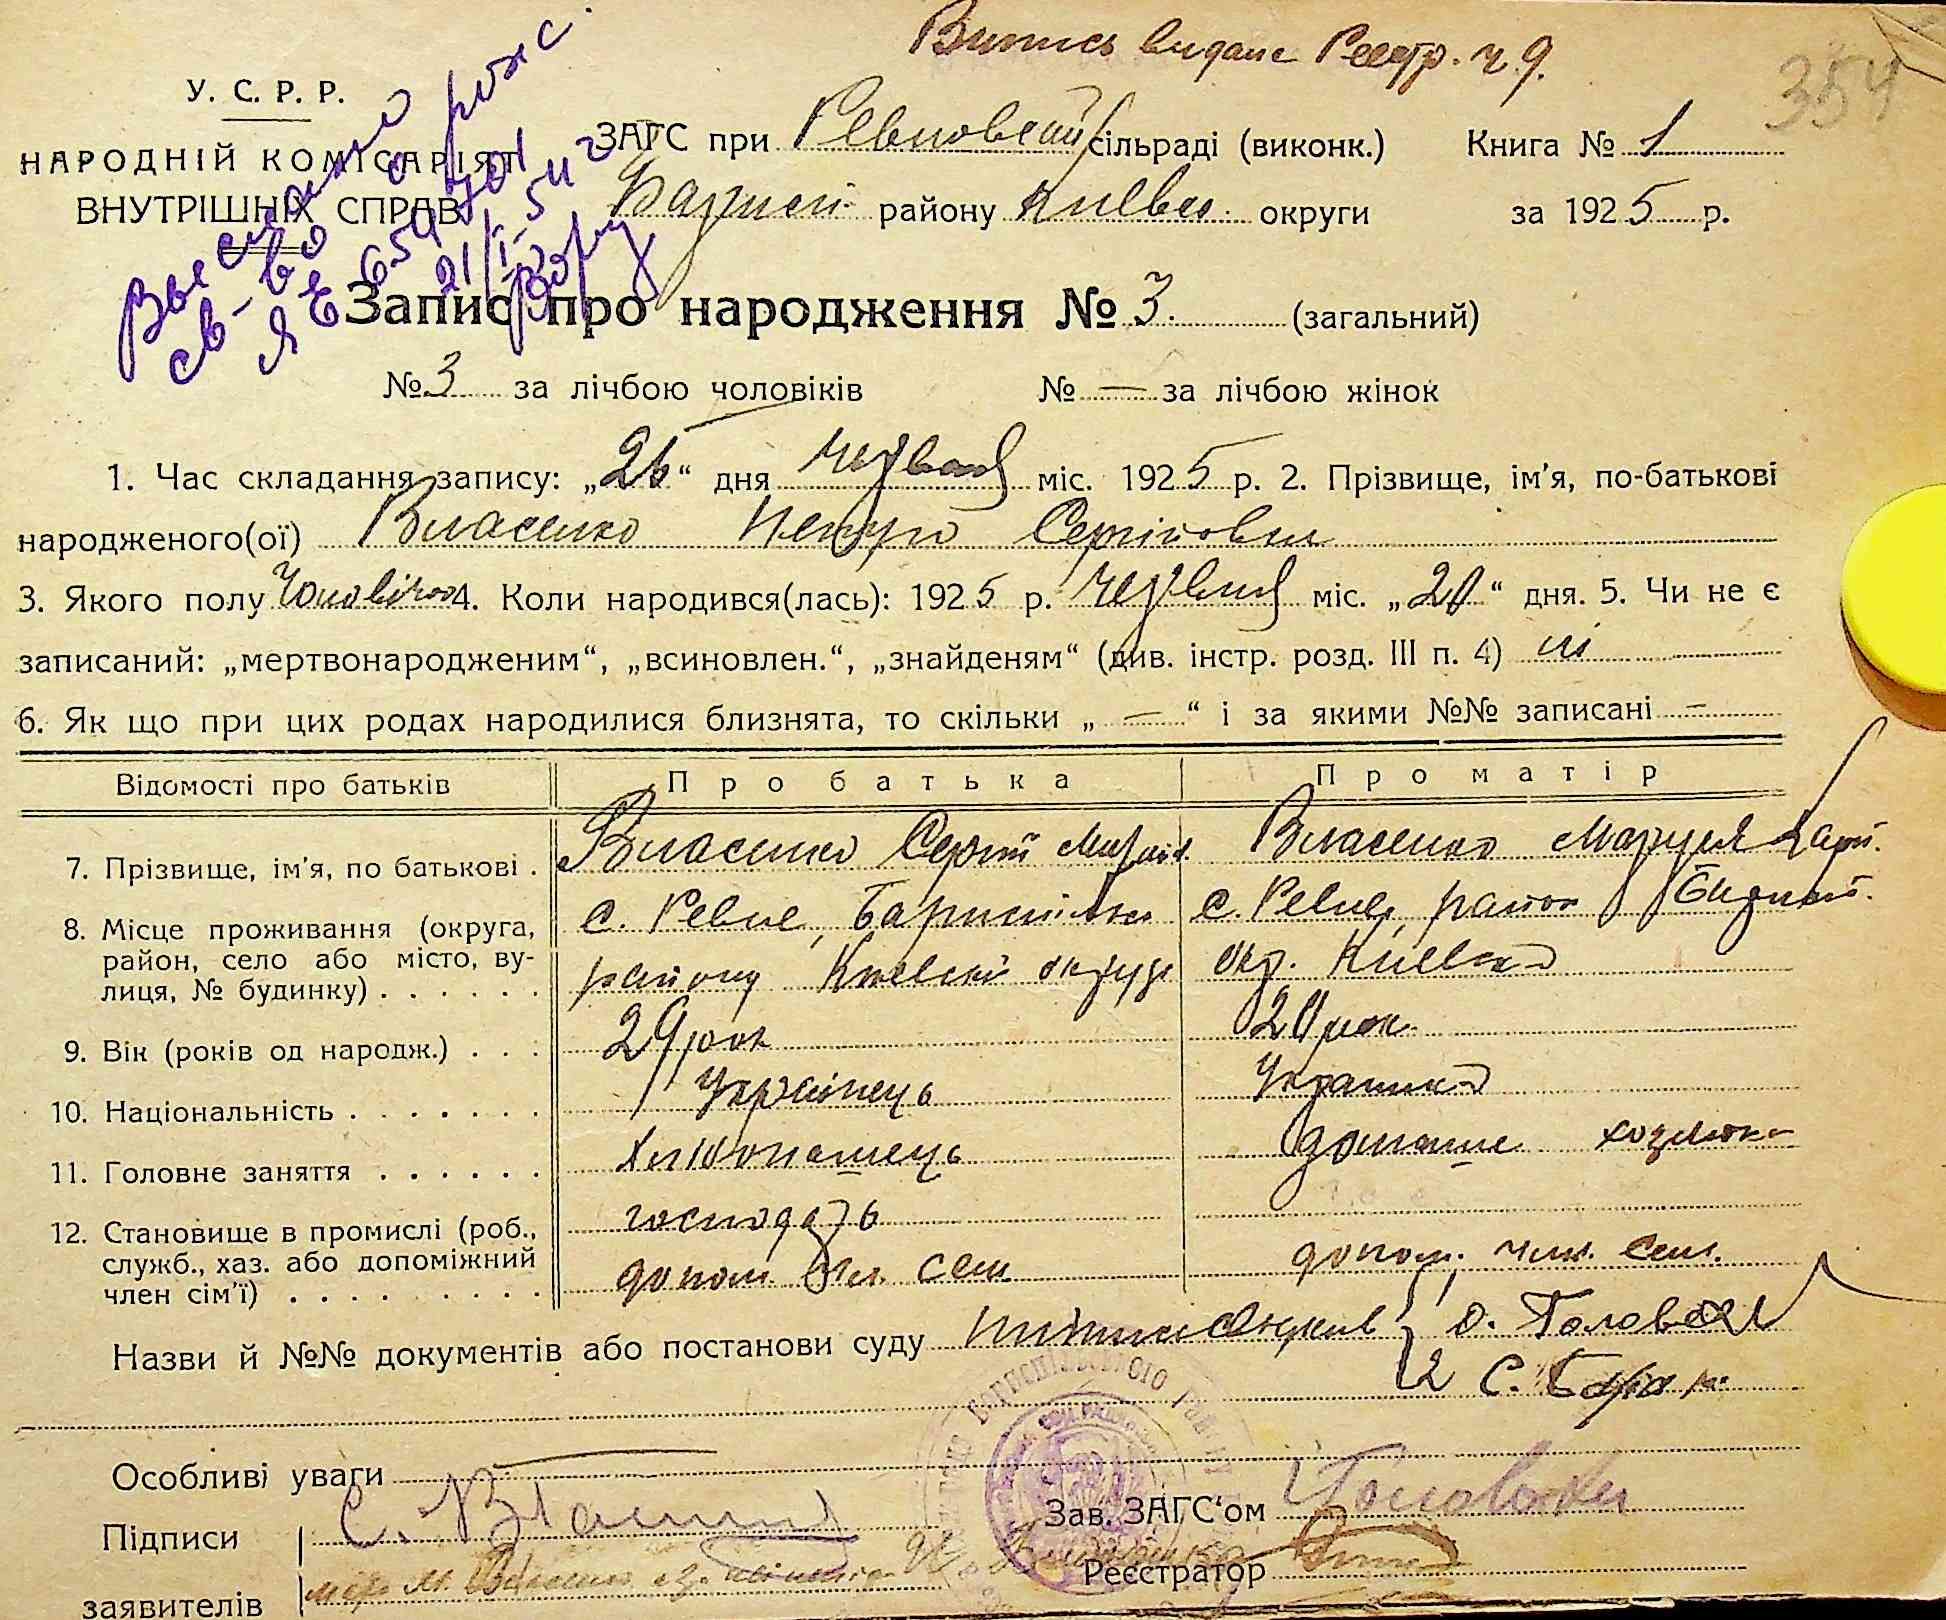 Випись видане Реєстр. ч 9.
354
У. С. Р. Р.
НАРОДНІЙ КОМІСАРІЯТ
ВНУТРІШНІХ СПРАВ
ЗАГС при сільраді (виконк.) Книга № 1
району Київск. округи за 1925 р.
Выслано
св-во о рожд.
21/I-54 г
Запис про народження № 3. (загальний)
№ 3 за лічбою чоловіків № — за лічбою жінок
1. Час складання запису: „26“ дня червня міс. 1925 р. 2. Прізвище, ім'я, по-батькові
народженого(ої) Власенко Петро Сергійович
3. Якого полу 4. Коли народився(лась): 1925 р. червня міс. „20“ дня. 5. Чи не є
записаний: „мертвонародженим“, „всиновлен.“, „знайденям“ (див. інстр. розд. III п. 4) ні
6. Як що при цих родах народилися близнята, то скільки „ — “ і за якими №№ записані —
Відомості про батьків Про батька Про матір
7. Прізвище, ім'я, по батькові . Власенко Сергій Власенко
8. Місце проживання (округа,
район, село або місто, ву-
лиця, № будинку) . . . . . .
с. Ревне, району округи
с. Ревне, район окр.
9. Вік (років од народж.) . . . 29 рок 20 рок
10. Національність . . . . . . . Українець Українка
11. Головне заняття . . . . . . домашнє
12. Становище в промислі (роб.,
служб., хаз. або допоміжний
член сім'ї) . . . . . . . . .
господарь
допом. чл. сем
допом. член. сем.
Назви й №№ документів або постанови суду
2 С.
Особливі уваги
Підписи
заявителів
Зав. ЗАГС'ом
Реєстратор